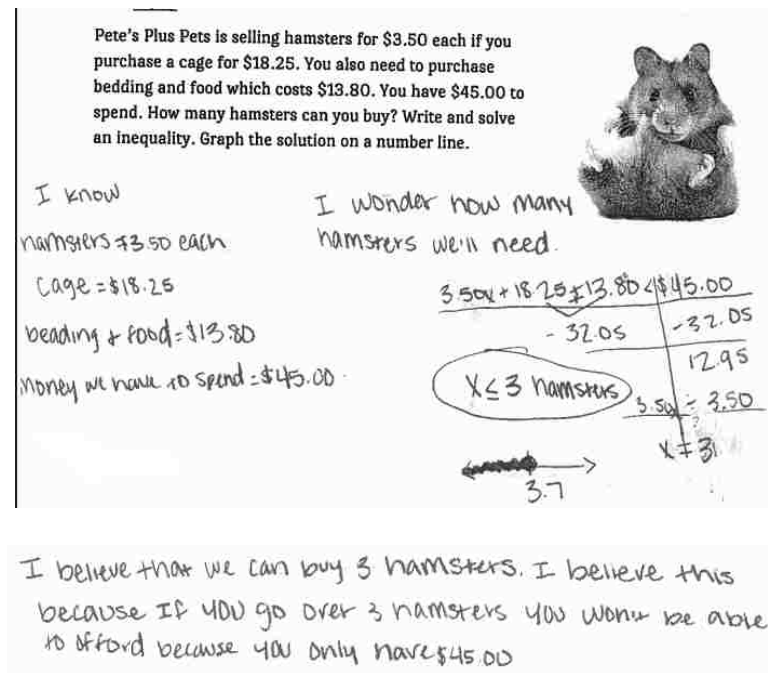 Pete's Plus Pets is selling hamsters for $3.50 each if you
purchase a cage for $18.25. You also need to purchase
bedding and food which costs $13.80. You have $45.00 to
spend. How many hamsters can you buy? Write and solve
an inequality. Graph the solution on a number line.
I know
hamsters $3.50 each
Cage = $18.25
beading & food = $13.80
Money we have to spend = $45.00
I wonder how many
hamsters we'll need.
3.50x + 18.25 + 13.80 ≤ $45.00
- 32.05 -32.05
12.95
X ≤ 3 hamsters
3.50 ÷ 3.50
3.7
I believe that we can buy 3 hamsters. I believe this
because If you go over 3 hamsters you won't be able
to afford because you only have $45.00